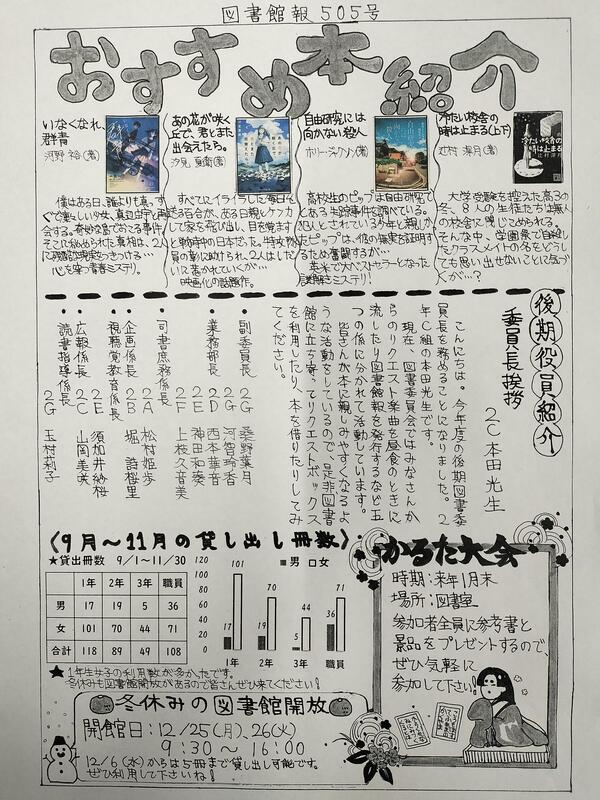 図書館報505号
おすすめ本紹介
いなくなれ、
群青
河野 裕(著)
僕はある日、誰よりも真っす
ぐで優しい少女、真辺由宇と再
会する。奇妙な島でおこる事件
そこに秘められた真相は、2人
に残酷な現実をつきつける…
心を穿つ青春ミステリ。
あの花が咲く
丘で、君とまた
出会えたら。
汐見 夏衛(著)
すべてにイライラした毎日を
送る百合が、ある日親とケンカ
して家を飛び出し、目を覚ます
と戦時中の日本だった。特攻隊
員の彰に助けられ、2人はしだ
いに惹かれていくが…
映画化の話題作。
自由研究には
向かない殺人
ホリー・ジャクソン(著)
高校生のピップは自由研究で
とある失踪事件を調べている。
犯人とされている少年と親しか
ったピップは、彼の無実を証明す
るため奮闘するが…
英米で大ベストセラーとなった
謎解きミステリ!
冷たい校舎の
時は止まる(上下)
辻村 深月(著)
大学受験を控えた高3の
冬、8人の生徒たちは無人
の校舎に閉じこめられる。
そんな中、学園祭で自殺し
たクラスメイトの名をどうし
ても思い出せないことに気づ
くが…?
後期役員紹介
委員長挨拶
2C 本田光生
こんにちは。今年度の後期図書委
員長を務めることになりました。2
年C組の本田光生です。
現在、図書委員会ではみなさんか
らのリクエスト楽曲を昼食のときに
流したり図書館報を発行するなど五
つの係に分かれて活動しています。
皆さんが本に親しみやすくなるよ
うな活動をしているので、是非図書
館に立ち寄ってリクエストボックス
を利用したり、本を借りたりしてみ
てください。
・副委員長 2G 桑野葉月
2G 河智玲香
・業務部長 2D 西本華音
2E 神田和奏
2F 上枝久音美
・司書庶務係長 2A 松村姫歩
・企画係長 2B 堀 詩桜里
・視聴覚教育係長 2E 須加井紗桜
・広報係長 2C 山岡美咲
・読書指導係長 2G 玉村莉子
〈9月〜11月の貸し出し冊数〉
★貸出冊数 9/1〜11/30
1年 2年 3年 職員
男 17 19 5 36
女 101 70 44 71
合計 118 89 49 108
■男 □女
120
100
80
60
40
20
0
17 101 19 70 5 44 36 71
1年 2年 3年 職員
★1年生女子の利用数が多かったです。
冬休みも図書館開放があるので皆さんぜひ来てください!
冬休みの図書館開放
開館日:12/25(月)、26(火)
9:30〜16:00
12/6(水)からは5冊まで貸し出し可能です。
ぜひ利用して下さいね!
かるた大会
時期:来年1月末
場所:図書室
参加者全員に参考書と
景品をプレゼントするので、
ぜひ気軽に
参加して下さい!